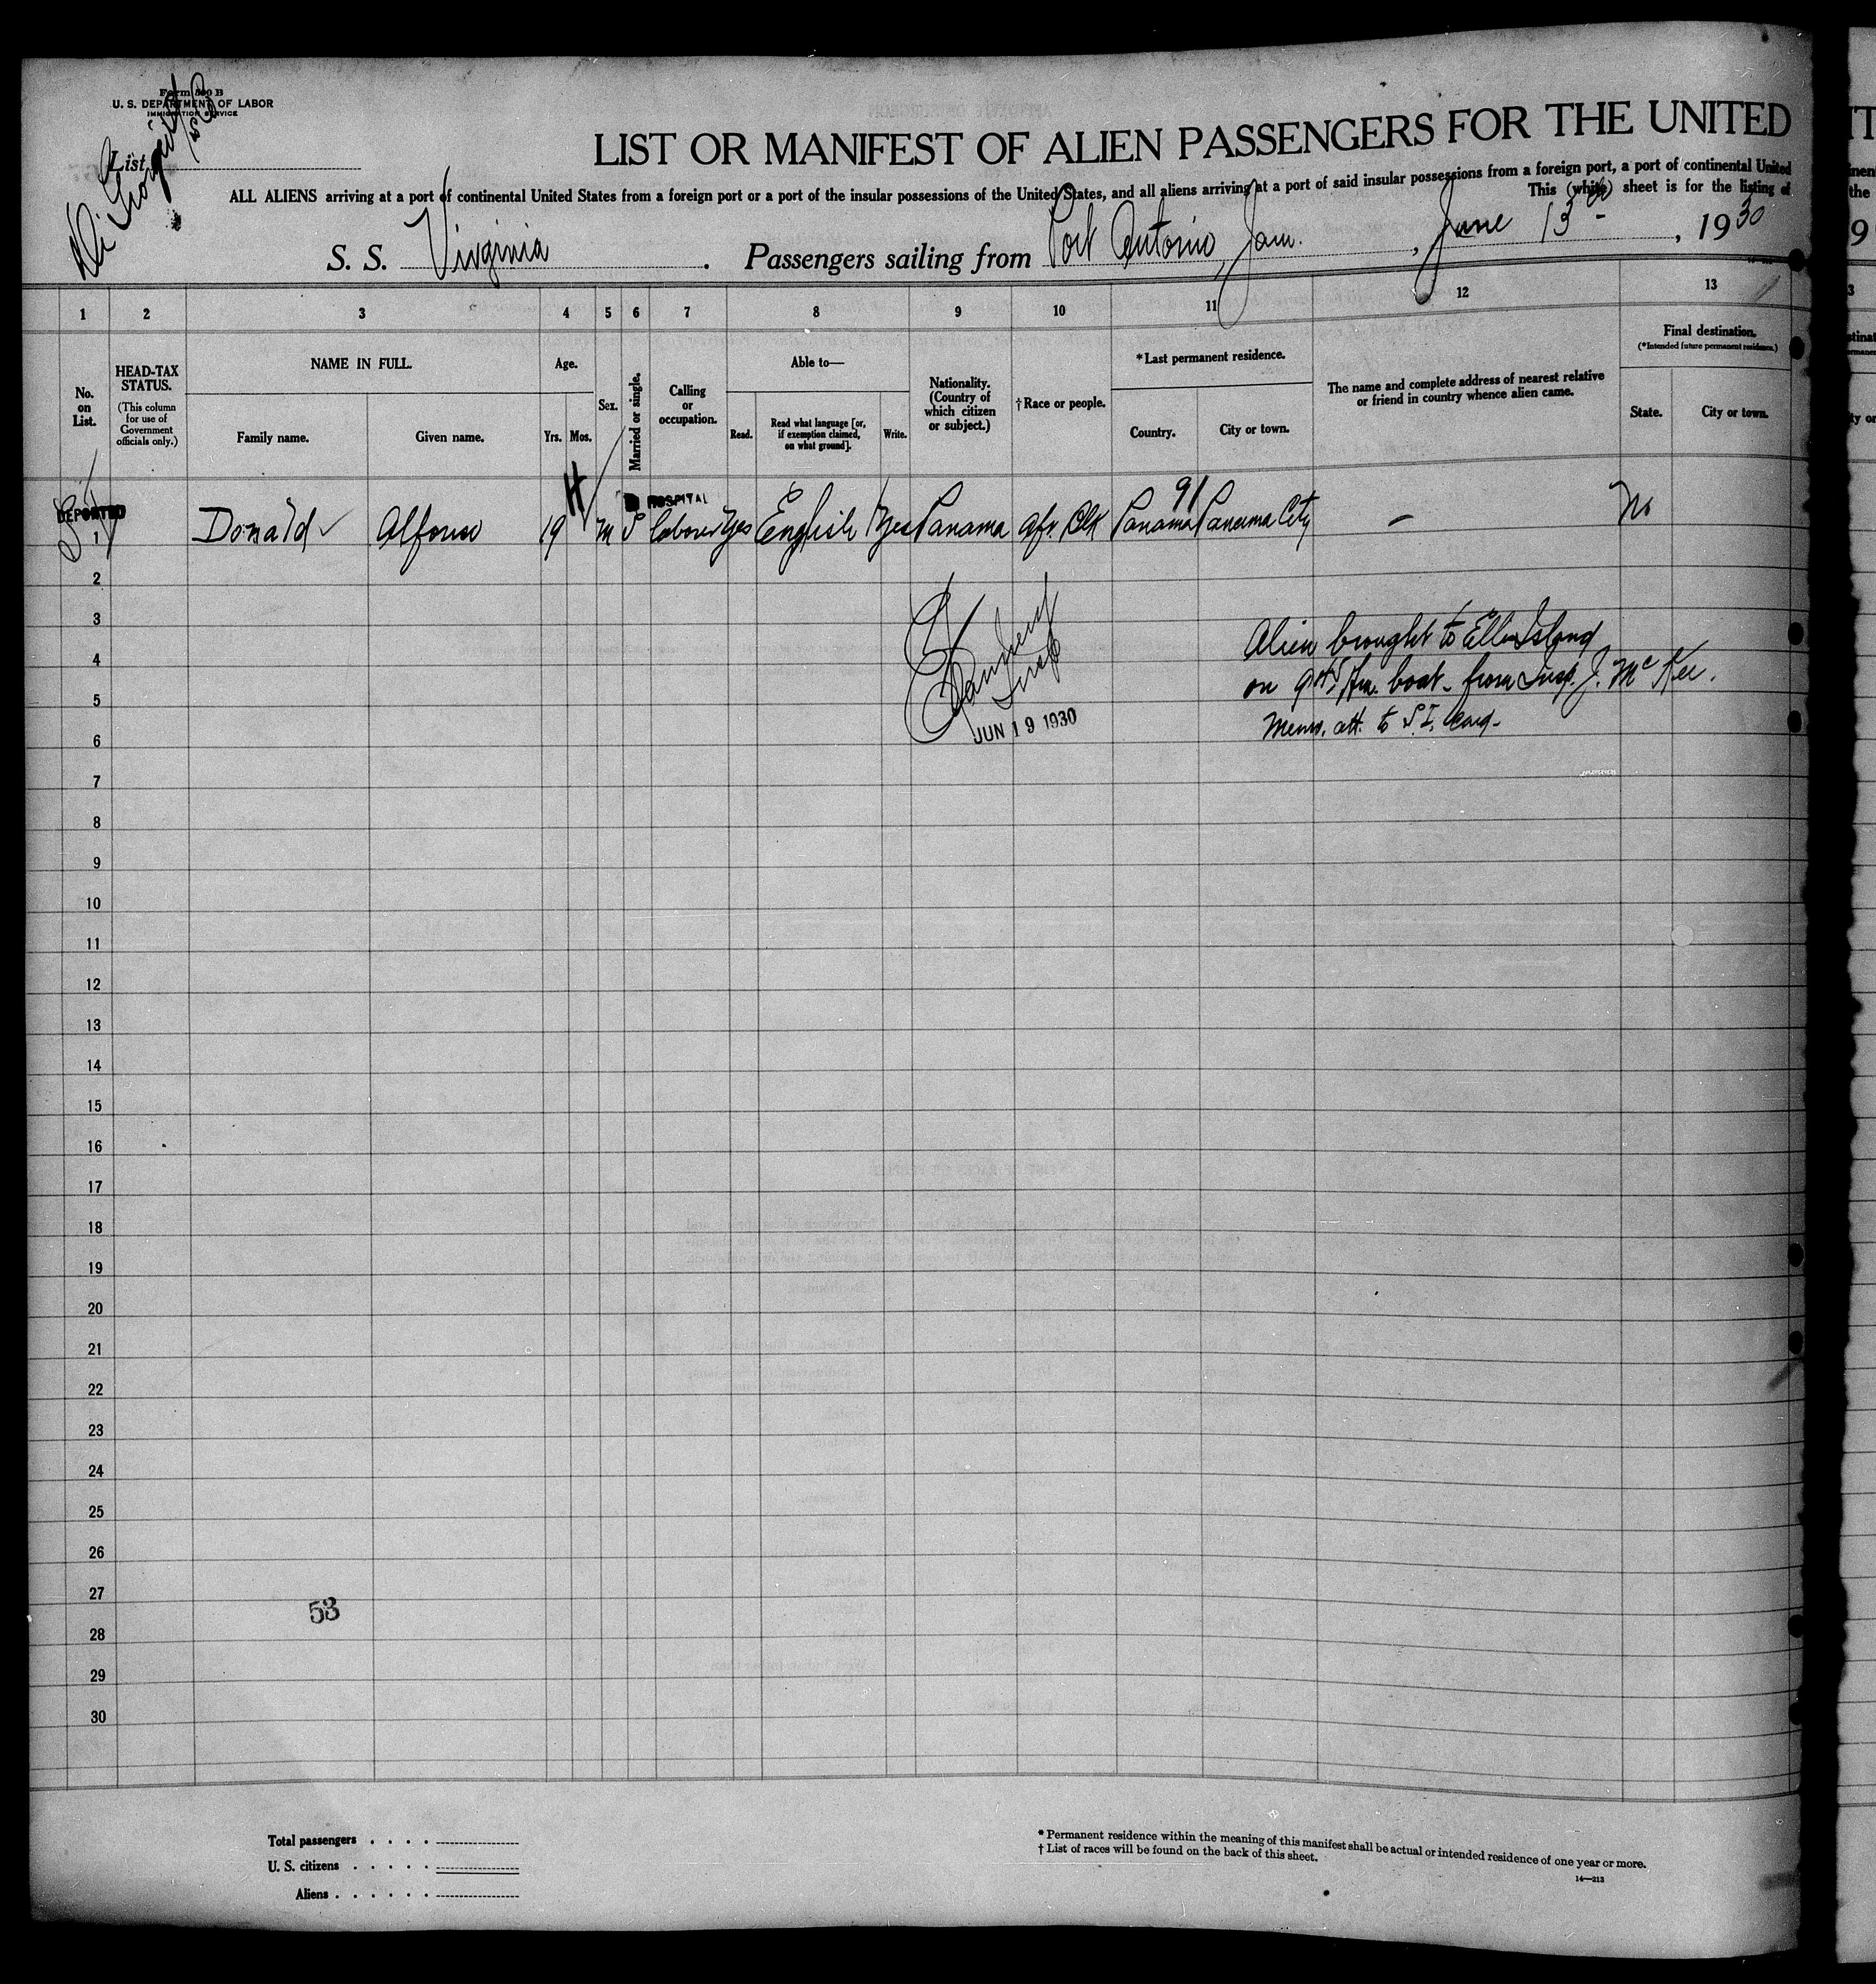 Form 500 B
U. S. DEPARTMENT OF LABOR
IMMIGRATION SERVICE
List
Di Giorgio
LIST OR MANIFEST OF ALIEN PASSENGERS FOR THE UNITED
ALL ALIENS arriving at a port of continental United States from a foreign port or a port of the insular possessions of the United States, and all aliens arriving at a port of said insular possessions from a foreign port, a port of continental United
This (white) sheet is for the listing of
S. S. Virginia . Passengers sailing from Port Antonio, Jam. , June 13 , 1930
1 2 3 4 5 6 7 8 9 10 11 12 13
No. on List.
HEAD-TAX STATUS.
(This column for use of Government officials only.)
NAME IN FULL.
Family name. Given name.
Age.
Yrs. Mos.
Sex.
Married or single.
Calling or occupation.
Able to—
Read. Read what language [or, if exemption claimed, on what ground]. Write.
Nationality. (Country of which citizen or subject.)
†Race or people.
*Last permanent residence.
Country. City or town.
The name and complete address of nearest relative or friend in country whence alien came.
Final destination.
(*Intended future permanent residence.)
State. City or town.
DEPORTED
H
HOSPITAL
91
1 Donald ✓ Alfonso 19 M S laborer Yes English Yes Panama Afr. Blk Panama Panama City — No
2
3
4
5
6
Insp
JUN 19 1930
Alien brought to Ellis Island
on 9 boat - from Insp. J. McKee.
Memo. att. to S.I. card -
7
8
9
10
11
12
13
14
15
16
17
18
19
20
21
22
23
24
25
26
27
53
28
29
30
Total passengers . . . .
U. S. citizens . . . . .
Aliens . . . . . .
* Permanent residence within the meaning of this manifest shall be actual or intended residence of one year or more.
† List of races will be found on the back of this sheet.
14—213